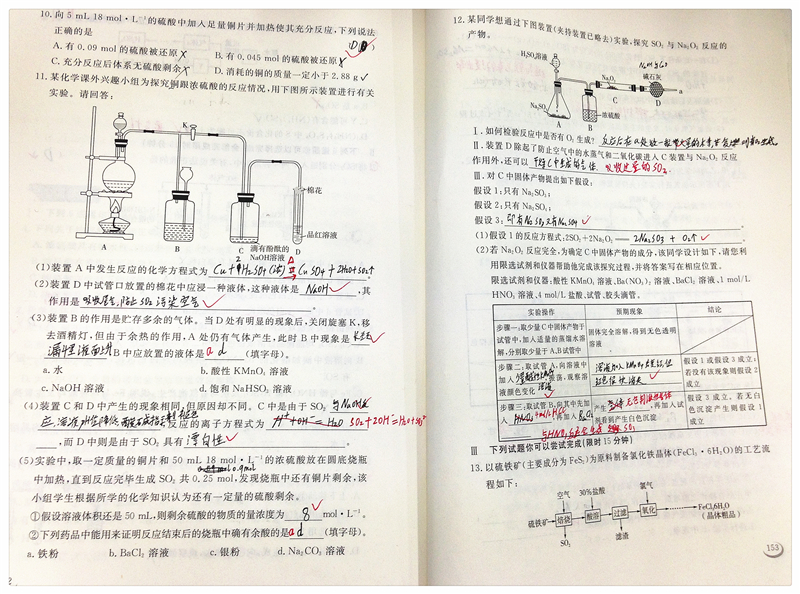 10. 向 5 mL 18 mol·L⁻¹的硫酸中加入足量铜片并加热使其充分反应,下列说法
正确的是 (D)
A. 有 0.09 mol 的硫酸被还原 B. 有 0.045 mol 的硫酸被还原
C. 充分反应后体系无硫酸剩余 D. 消耗的铜的质量一定小于 2.88 g
11. 某化学课外兴趣小组为探究铜跟浓硫酸的反应情况,用下图所示装置进行有关
实验。请回答:
K
棉花
品红溶液
A B C D
滴有酚酞的
NaOH溶液
(1)装置 A 中发生反应的化学方程式为 Cu+2H₂SO₄(浓)≜CuSO₄+2H₂O+SO₂↑
(2)装置 D 中试管口放置的棉花中应浸一种液体,这种液体是 NaOH ,其
作用是 吸收尾气,防止SO₂污染空气
(3)装置 B 的作用是贮存多余的气体。当 D 处有明显的现象后,关闭旋塞 K,移
去酒精灯,但由于余热的作用,A 处仍有气体产生,此时 B 中现象是
B 中应放置的液体是 a d (填字母)。
a. 水 b. 酸性 KMnO₄ 溶液
c. NaOH 溶液 d. 饱和 NaHSO₃ 溶液
(4)装置 C 和 D 中产生的现象相同,但原因却不同。C 中是由于 SO₂ 与NaOH反
应 反应的离子方程式为 H⁺+OH⁻=H₂O SO₂+2OH⁻=H₂O+SO₃²⁻
,而 D 中则是由于 SO₂ 具有 漂白性 。
(5)实验中,取一定质量的铜片和 50 mL 18 mol·L⁻¹ 的浓硫酸放在圆底烧瓶
0.9mol
中加热,直到反应完毕生成 SO₂ 共 0.25 mol,发现烧瓶中还有铜片剩余,该
小组学生根据所学的化学知识认为还有一定量的硫酸剩余。
①假设溶液体积还是 50 mL,则剩余硫酸的物质的量浓度为 8 mol·L⁻¹。
②下列药品中能用来证明反应结束后的烧瓶中确有余酸的是 a d (填字母)。
a. 铁粉 b. BaCl₂ 溶液 c. 银粉 d. Na₂CO₃ 溶液
12. 某同学想通过下图装置(夹持装置已略去)实验,探究 SO₂ 与 Na₂O₂ 反应的
产物。
H₂SO₄溶液
Na₂SO₃
Na₂O₂
碱石灰
a
浓硫酸
B C D
Ⅰ. 如何检验反应中是否有 O₂ 生成?
Ⅱ. 装置 D 除起了防止空气中的水蒸气和二氧化碳进入 C 装置与 Na₂O₂ 反应
作用外,还可以 吸收过量的SO₂.
Ⅲ. 对 C 中固体产物提出如下假设:
假设 1:只有 Na₂SO₃;
假设 2:只有 Na₂SO₄;
假设 3: 即有Na₂SO₃又有Na₂SO₄ 。
(1)假设 1 的反应方程式:2SO₂+2Na₂O₂—— 2Na₂SO₃+O₂↑ 。
(2)若 Na₂O₂ 反应完全,为确定 C 中固体产物的成分,该同学设计如下,请您利
用限选试剂和仪器帮助他完成该探究过程,并将答案写在相应位置。
限选试剂和仪器:酸性 KMnO₄ 溶液、Ba(NO₃)₂ 溶液、BaCl₂ 溶液、1 mol/L
HNO₃ 溶液、4 mol/L 盐酸、试管、胶头滴管。
实验操作 预期现象 结论
步骤一:取少量 C 中固体产物于
试管中,加入适量的蒸馏水溶
解,分别取少量于 A、B 试管中
固体完全溶解,得到无色透明
溶液
步骤二:取试管 A,向溶液中
加入 ,振荡,观察溶
液颜色变化
假设 1 或假设 3 成立;
若没有该现象则假设 2
成立
步骤三:取试管 B,向其中先加
入 ,再加入
产生 ,再加入试
剂看到产生白色沉淀
假设 3 成立,若无白
色沉淀产生则假设 1
成立
Ⅲ 下列试题你可以尝试完成(限时 15 分钟)
13. 以硫铁矿(主要成分为 FeS₂)为原料制备氯化铁晶体(FeCl₃·6H₂O)的工艺流
程如下:
空气 30%盐酸 氯气
硫铁矿 焙烧 酸溶 过滤 氧化 FeCl₃6H₂O
(晶体粗品)
SO₂ 滤渣
153